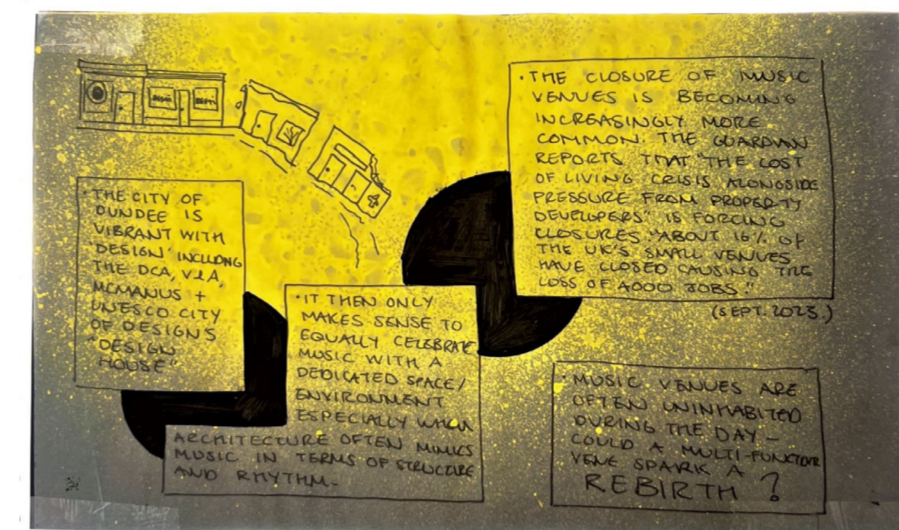 • THE CITY OF
DUNDEE IS
VIBRANT WITH
'DESIGN' INCLUDING
THE DCA, V&A,
MCMANUS +
UNESCO CITY
OF DESIGN'S
"DESIGN
HOUSE"
• IT THEN ONLY
MAKES SENSE TO
EQUALLY CELEBRATE
MUSIC WITH A
DEDICATED SPACE/
ENVIRONMENT
ESPECIALLY WHEN
ARCHITECTURE OFTEN MIMICS
MUSIC IN TERMS OF STRUCTURE
AND RHYTHM.
• THE CLOSURE OF MUSIC
VENUES IS BECOMING
INCREASINGLY MORE
COMMON. THE GUARDIAN
REPORTS THAT "THE COST
OF LIVING CRISIS ALONGSIDE
PRESSURE FROM PROPERTY
DEVELOPERS" IS FORCING
CLOSURES. "ABOUT 16% OF
THE UK'S SMALL VENUES
HAVE CLOSED CAUSING THE
LOSS OF 4000 JOBS."
(SEPT. 2023.)
• MUSIC VENUES ARE
OFTEN UNINHABITED
DURING THE DAY –
COULD A MULTI-FUNCTION
VENE SPARK A
REBIRTH ?